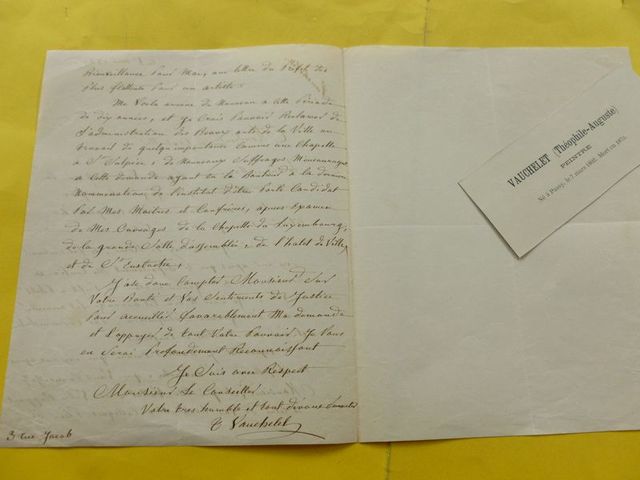 Bienveillance Pour Moi, une lettre du Préfet des
Plus flatteuse Pour un artiste.
Me Voila arrivé de Nouveau à cette Période
de dix années, et Je Crois Pouvoir Réclamer de
l'administration des Beaux arts de la Ville un
travail de quelqu'importance Comme une Chapelle
à St Sulpice, de Nombreux Suffrages
à Cette demande ayant eu la Bonheur à la dernière
Nomination de l'institut d'être Porté Candidat
Par Mes Maitres et Confrères, après Examen
de Mes Ouvrages de la Chapelle du Luxembourg,
de la grande Salle d'assemblée, de l'hotel de Ville,
et de St Eustache,
J'ose donc Compter Monsieur Sur
Votre Bonté et Vos Sentiments de Justice
Pour accueillir favorablement Ma demande
et l'appuyer de tout Votre Pouvoir. Je Vous
en Serai Profondement Reconnaissant
Je Suis avec Respect
Monsieur Le Conseiller
Votre tres humble et tout dévoué Serviteur
T Vauchelet
3 rue Jacob
VAUCHELET (Théophile-Auguste)
PEINTRE
Né à Passy, le 7 mars 1802. Mort en 1873.